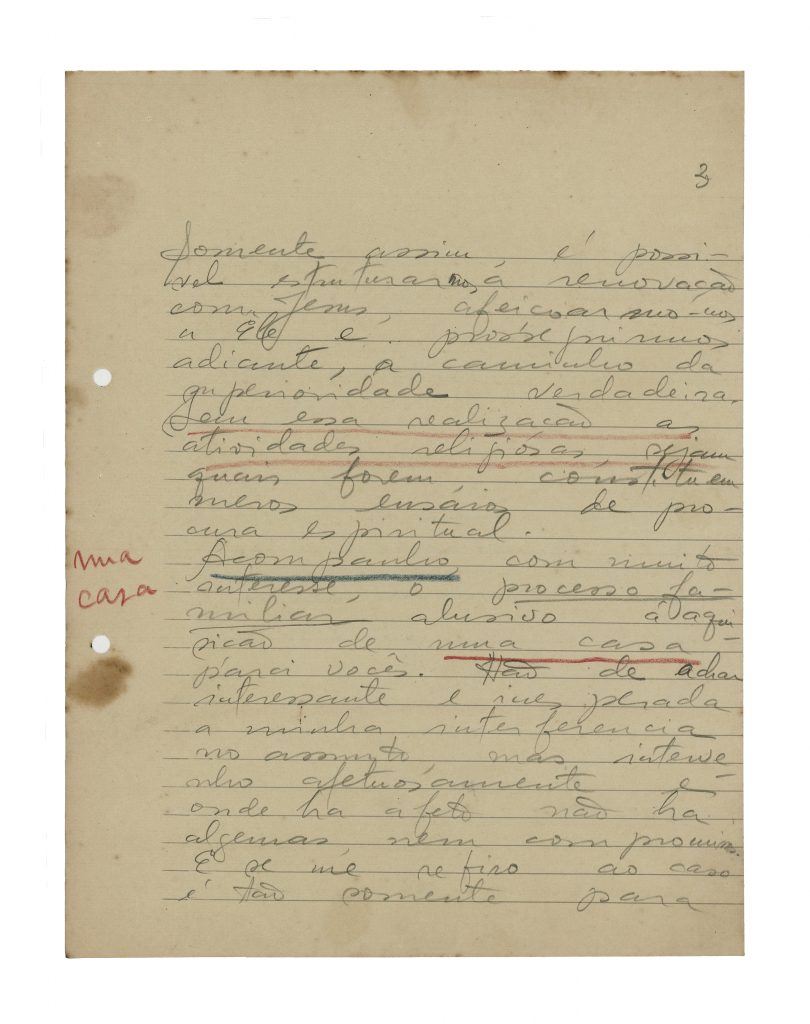 3
Somente assim, é possi-
vel estruturarmos á renovação
com Jesus, afeiçoarmo-nos
a Ele e prosseguirmos
adiante, a caminho da
superioridade verdadeira.
Sem essa realização as
atividades religiósas, sejam
quais forem, constituem
meros ensáios de pro-
cura espiritual.
Acompanho, com muito
interesse, o processo fa-
miliar alusivo á aqui-
sição de uma casa
para vocês. Hão de achar
interessante e inesperada
a minha interferencia
no assunto, mas interve-
nho afetuósamente e
onde ha afeto não ha
algemas, nem
E se me refiro ao caso
é tão somente para
uma
casa